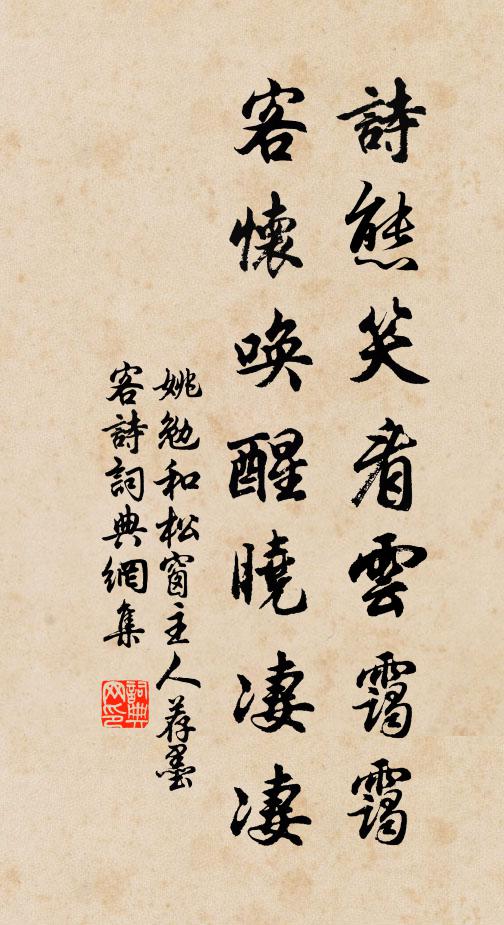 詩態笑看雲靄靄
客懷喚醒曉淒淒
姚勉和松窗主人荐墨
客詩詞典網集
詞典網印